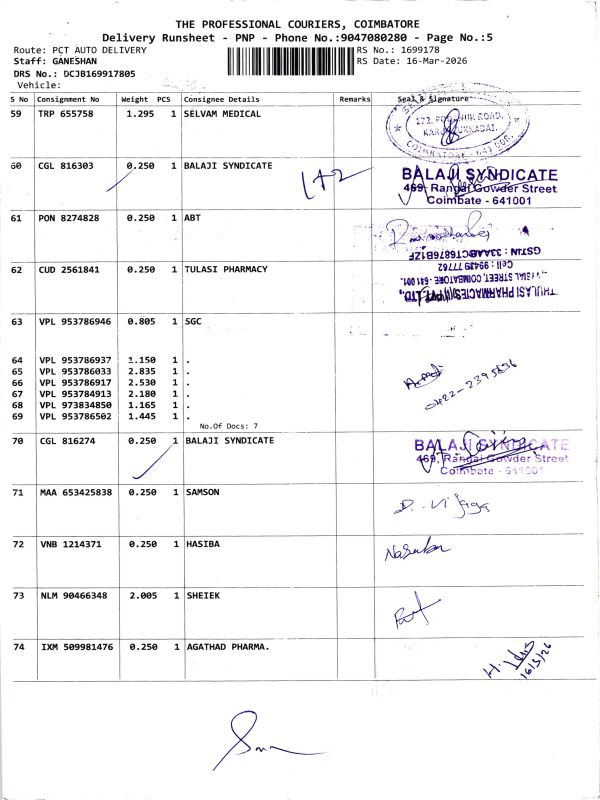 THE PROFESSIONAL COURIERS, COIMBATORE
Delivery Runsheet - PNP - Phone No.:9047080280 - Page No.:5
Route: PCT AUTO DELIVERY RS No.: 1699178
Staff: GANESHAN RS Date: 16-Mar-2026
DRS No.: DCJB169917805
Vehicle:
S No Consignment No Weight PCS Consignee Details Remarks Seal & Signature
59 TRP 655758 1.295 1 SELVAM MEDICAL
60 CGL 816303 0.250 1 BALAJI SYNDICATE
1+2
BALAJI SYNDICATE
469, Rangai Gowder Street
Coimbate - 641001
61 PON 8274828 0.250 1 ABT
GSTIN : 33AABCT6876B1ZF
62 CUD 2561841 0.250 1 TULASI PHARMACY
Cell : 99439 77762
STREET, COIMBATORE - 641 001.
THULASI PHARMACIES
63 VPL 953786946 0.805 1 SGC
64 VPL 953786937 1.150 1 .
65 VPL 953786033 2.835 1 .
66 VPL 953786917 2.530 1 .
67 VPL 953784913 2.180 1 .
68 VPL 973834850 1.165 1 .
69 VPL 953786502 1.445 1 .
No.Of Docs: 7
70 CGL 816274 0.250 1 BALAJI SYNDICATE
BALAJI SYNDICATE
469, Rangai Gowder Street
Coimbate - 641001
71 MAA 653425838 0.250 1 SAMSON
72 VNB 1214371 0.250 1 HASIBA
73 NLM 90466348 2.005 1 SHEIEK
74 IXM 509981476 0.250 1 AGATHAD PHARMA.
16/3/26